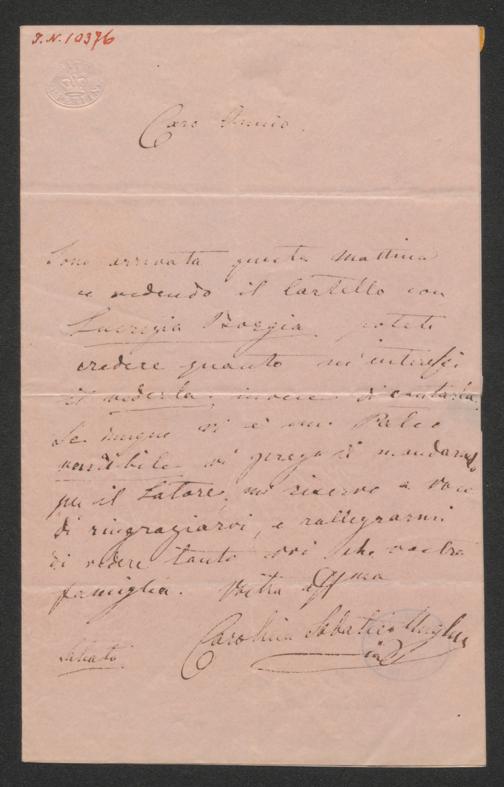 I.N. 10376
Caro Amico.
Sono arrivata questa mattina
e vedendo il Cartello con
Lucrezia Borgia potete
credere quanto m'interessi
il vederla, invece di cantarla.
Se dunque vi è un Palco
vendibile vi prego di mandarmelo
per il Latore, mi riservo a voce
di ringraziarvi, e rallegrarmi
di vedere tanto voi che vostra
famiglia. Vostra affma
Carolina Sabatier Ungher
Sabato